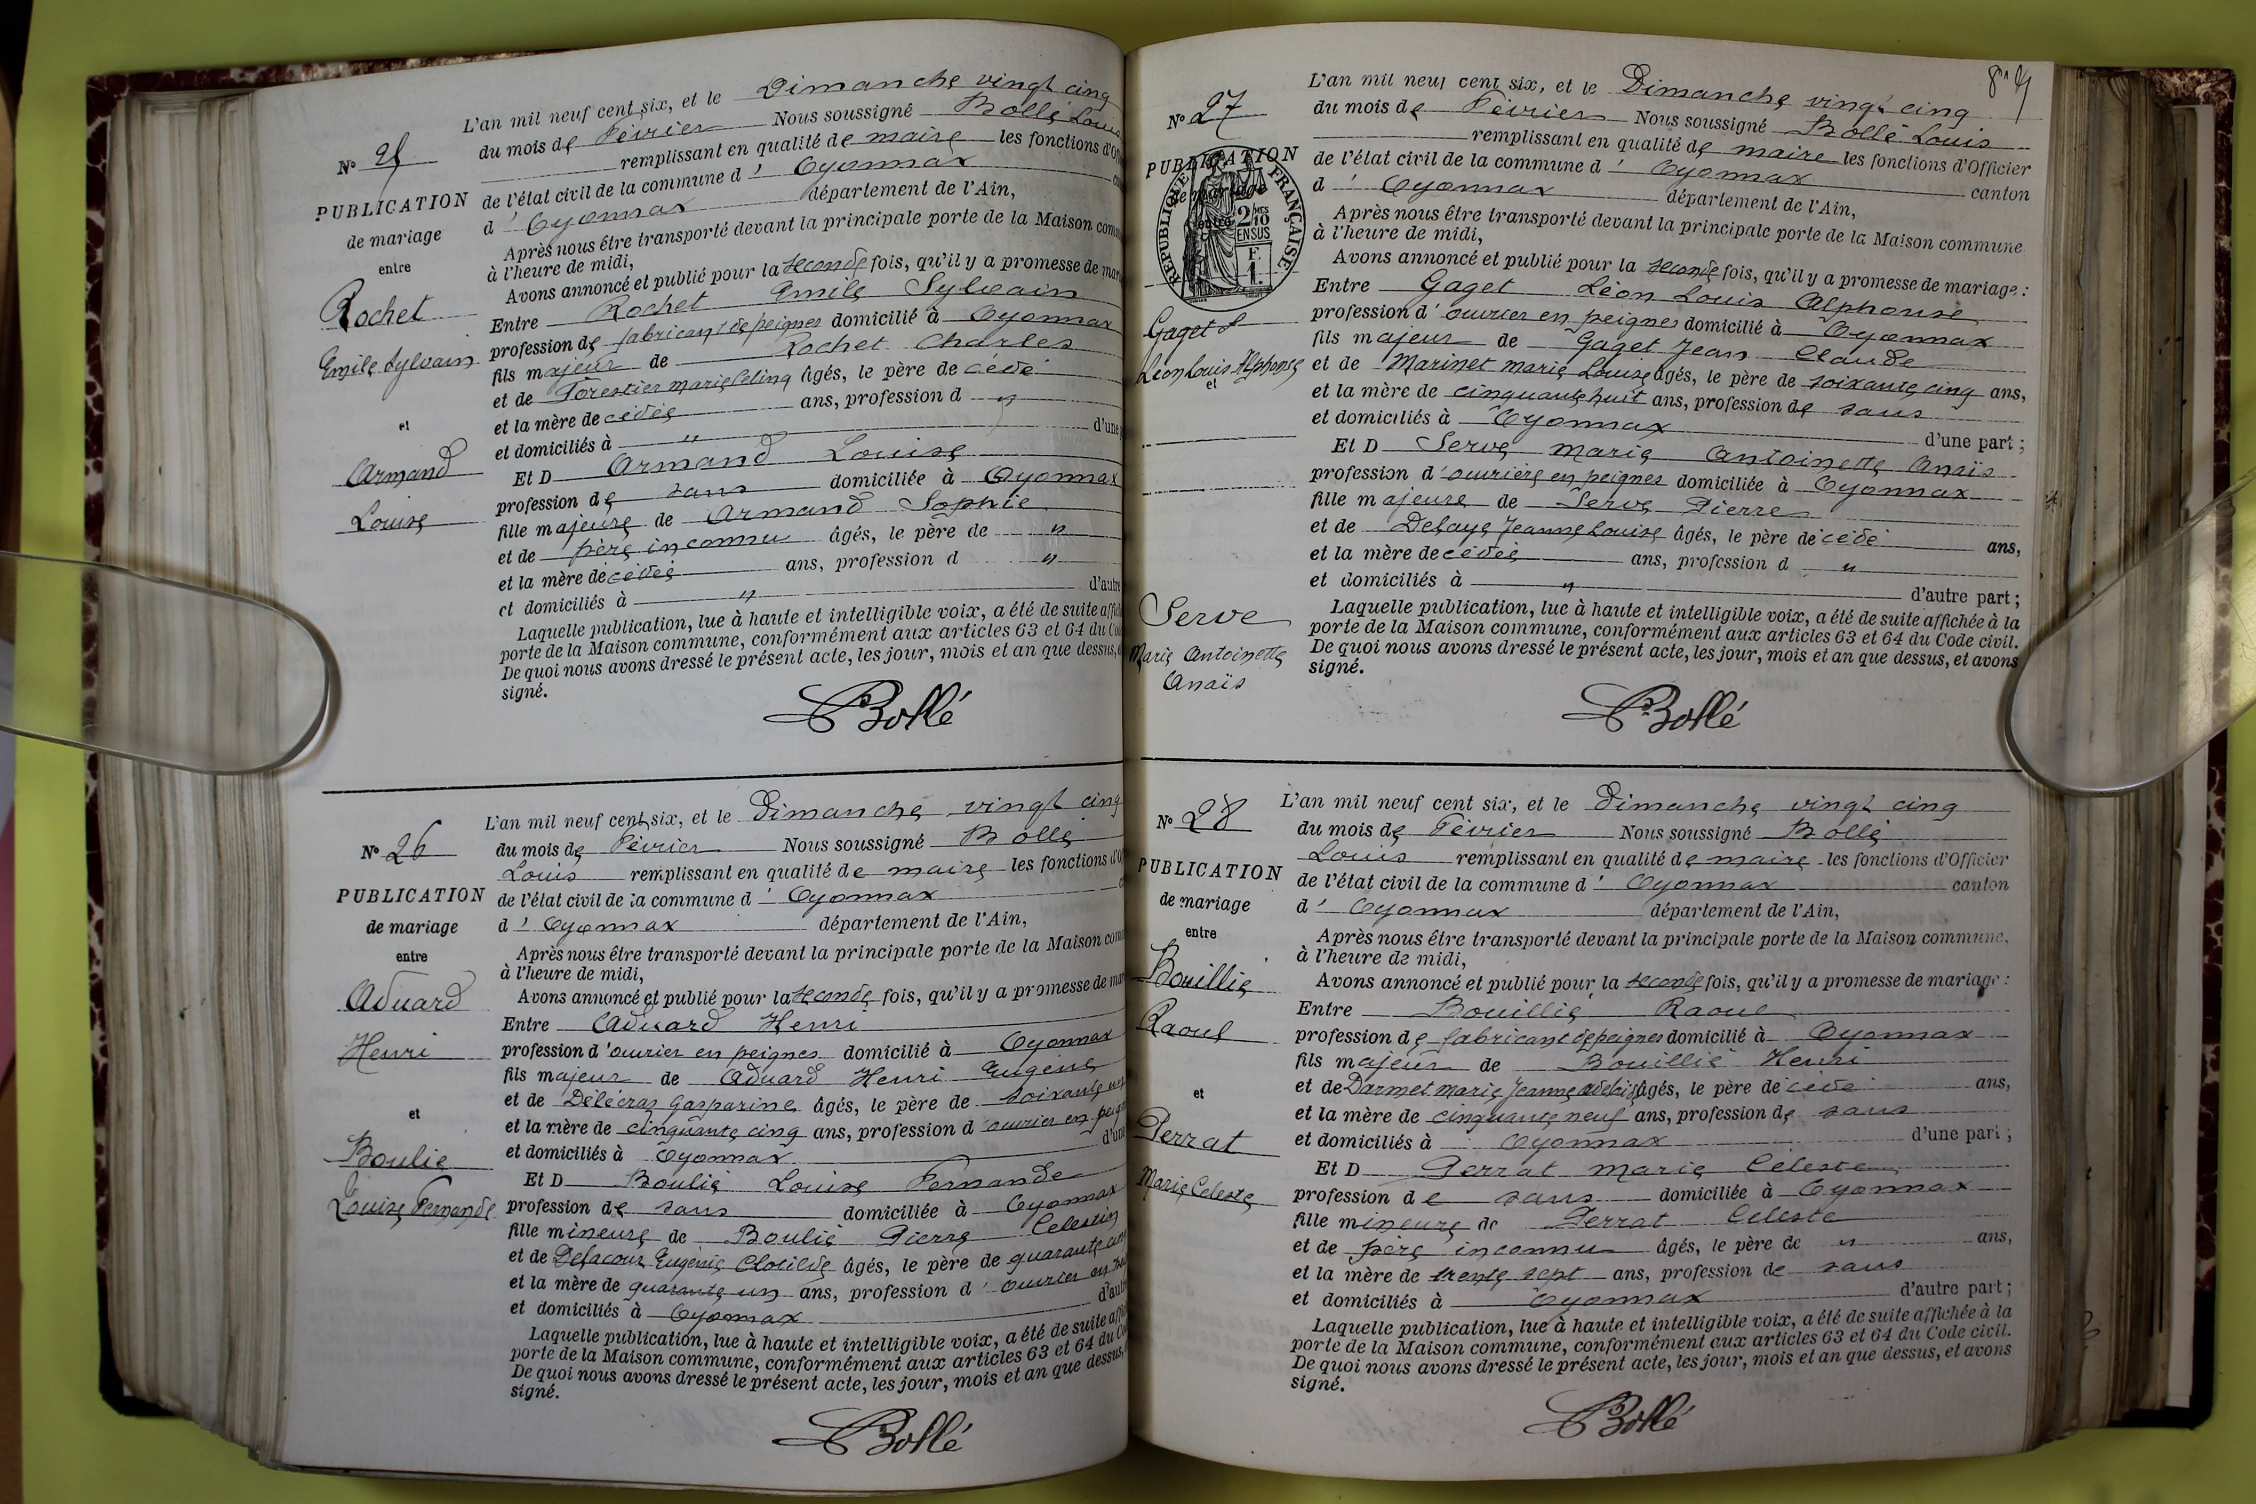 N° 25
PUBLICATION
de mariage
entre
Rochet
Emile Sylvain
et
Armand
Louise
L'an mil neuf cent six, et le Dimanche vingt cinq
du mois de Février Nous soussigné Bollé Louis
remplissant en qualité de maire les fonctions d'Off
de l'état civil de la commune d' Oyonnax
d' Oyonnax département de l'Ain,
Après nous être transporté devant la principale porte de la Maison comm
à l'heure de midi,
Avons annoncé et publié pour la seconde fois, qu'il y a promesse de mar
Entre Rochet Emile Sylvain
profession de fabricant de peignes domicilié à Oyonnax
fils majeur de Rochet Charles
et de Forestier marie Celine âgés, le père de cédé
et la mère de cédée ans, profession d "
et domiciliés à " d'une p
Et D Armand Louise
profession de sans domiciliée à Oyonnax
fille majeure de Armand Sophie
et de père inconnu âgés, le père de "
et la mère de cédée ans, profession d "
et domiciliés à " d'autre
Laquelle publication, lue à haute et intelligible voix, a été de suite affich
porte de la Maison commune, conformément aux articles 63 et 64 du Cod
De quoi nous avons dressé le présent acte, les jour, mois et an que dessus,
signé.
Bollé
N° 26
PUBLICATION
de mariage
entre
Aduard
Henri
et
Boulie
Louise Fernande
L'an mil neuf cent six, et le Dimanche vingt cinq
du mois de Février Nous soussigné Bollé
Louis remplissant en qualité de maire les fonctions d'Of
de l'état civil de la commune d' Oyonnax
d' Oyonnax département de l'Ain,
Après nous être transporté devant la principale porte de la Maison comm
à l'heure de midi,
Avons annoncé et publié pour la seconde fois, qu'il y a promesse de mar
Entre Aduard Henri
profession d'ouvrier en peignes domicilié à Oyonnax
fils majeur de Aduard Henri Eugène
et de Délécras Gasparine âgés, le père de soixante
et la mère de cinquante cinq ans, profession d'ouvrier en peign
et domiciliés à Oyonnax d'une
Et D Boulié Louise Fernande
profession de sans domiciliée à Oyonnax
fille mineure de Boulié Pierre Celestin
et de Delacour Eugénie Clotilde âgés, le père de quarante cinq
et la mère de quarante un ans, profession d' ouvrier en
et domiciliés à Oyonnax d'aut
Laquelle publication, lue à haute et intelligible voix, a été de suite affi
porte de la Maison commune, conformément aux articles 63 et 64 du Co
De quoi nous avons dressé le présent acte, les jour, mois et an que dessus,
signé.
Bollé
N° 27
PUBLICATION
de mariage
entre
REPUBLIQUE FRANÇAISE
2/10 MES
EN SUS
F.
1.
Gaget
Léon Louis Alphonse
et
Serve
Marie Antoinette
Anaïs
L'an mil neuf cent six, et le Dimanche vingt cinq
du mois de Février Nous soussigné Bollé Louis
remplissant en qualité de maire les fonctions d'Officier
de l'état civil de la commune d' Oyonnax canton
d' Oyonnax département de l'Ain,
Après nous être transporté devant la principale porte de la Maison commune
à l'heure de midi,
Avons annoncé et publié pour la seconde fois, qu'il y a promesse de mariage :
Entre Gaget Léon Louis Alphonse
profession d'ouvrier en peignes domicilié à Oyonnax
fils majeur de Gaget Jean Claude
et de Marinet marie Louise âgés, le père de soixante cinq ans,
et la mère de cinquante huit ans, profession de sans
et domiciliés à Oyonnax d'une part ;
Et D Serve Marie Antoinette Anaïs
profession d'ouvrière en peignes domiciliée à Oyonnax
fille majeure de Serve Pierre
et de Delaye Jeanne Louise âgés, le père de cédé ans,
et la mère de cédée ans, profession d "
et domiciliés à " d'autre part ;
Laquelle publication, lue à haute et intelligible voix, a été de suite affichée à la
porte de la Maison commune, conformément aux articles 63 et 64 du Code civil.
De quoi nous avons dressé le présent acte, les jour, mois et an que dessus, et avons
signé.
Bollé
N° 28
PUBLICATION
de mariage
entre
Bouillié
Raoul
et
Perrat
Marie Celeste
L'an mil neuf cent six, et le Dimanche vingt cinq
du mois de Février Nous soussigné Bollé
Louis remplissant en qualité de maire les fonctions d'Officier
de l'état civil de la commune d' Oyonnax canton
d' Oyonnax département de l'Ain,
Après nous être transporté devant la principale porte de la Maison commune,
à l'heure de midi,
Avons annoncé et publié pour la seconde fois, qu'il y a promesse de mariage :
Entre Bouillié Raoul
profession de fabricant de peignes domicilié à Oyonnax
fils majeur de Bouillié Henri
et de Darmet Marie Jeanne Adelaïde âgés, le père de cédé ans,
et la mère de cinquante neuf ans, profession de sans
et domiciliés à Oyonnax d'une part ;
Et D Perrat Marie Céleste
profession de sans domiciliée à Oyonnax
fille mineure de Perrat Celeste
et de père inconnu âgés, le père de " ans,
et la mère de trente sept ans, profession de sans
et domiciliés à Oyonnax d'autre part ;
Laquelle publication, lue à haute et intelligible voix, a été de suite affichée à la
porte de la Maison commune, conformément aux articles 63 et 64 du Code civil.
De quoi nous avons dressé le présent acte, les jour, mois et an que dessus, et avons
signé.
Bollé